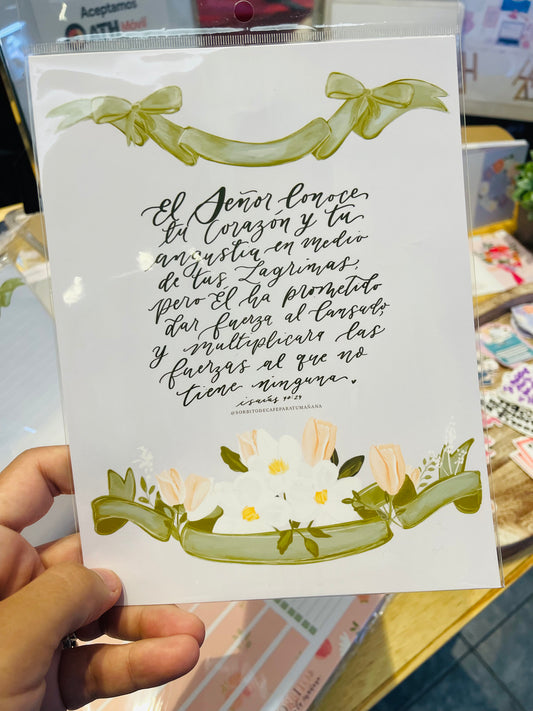 Aceptamos
ATH Móvil
El Señor Conoce
tu Corazón y tu
angustia en medio
de tus Lagrimas,
pero El ha prometido
dar fuerza al Cansado,
y multiplicara las
fuerzas al que no
tiene ninguna.
isaías 40:29
@SORBITODECAFEPARATUMAÑANA